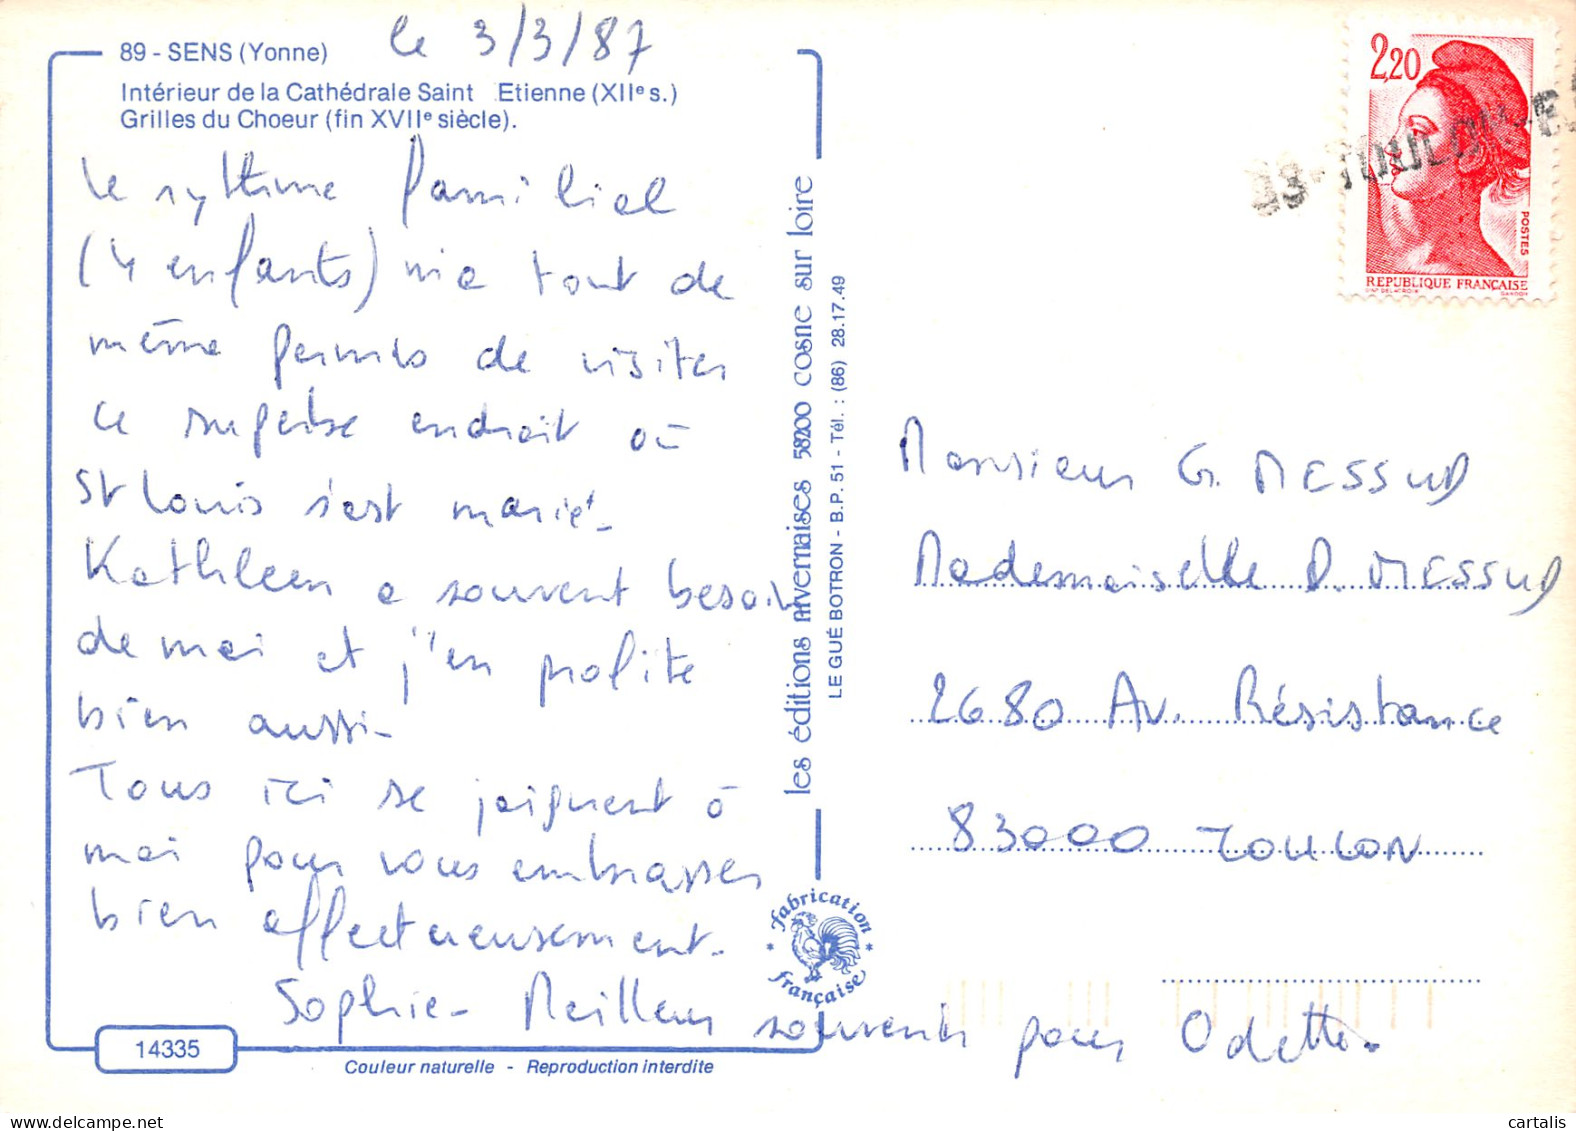 89 - SENS (Yonne)
le 3/3/87
Intérieur de la Cathédrale Saint Etienne (XIIe s.)
Grilles du Choeur (fin XVIIe siècle).
le rythme familial
(4 enfants) m'a tout de
même permis de visiter
ce superbe endroit où
St Louis s'est marié.
Kathleen a souvent besoin
de moi et j'en profite
bien aussi.
Tous ici se joignent à
moi pour vous embrasser
bien affectueusement.
Sophie. Meilleurs souvenirs pour Odette.
14335
Couleur naturelle - Reproduction interdite
les éditions nivernaises 58200 cosne sur loire
LE GUÉ BOTRON - B.P. 51 - Tél. : (86) 28.17.49
fabrication
française
2,20
POSTES
REPUBLIQUE FRANÇAISE
GANDON
Monsieur G. MESSUD
Mademoiselle D. MESSUD
2680 Av. Résistance
83000 TOULON
cartalis
delcampe.net